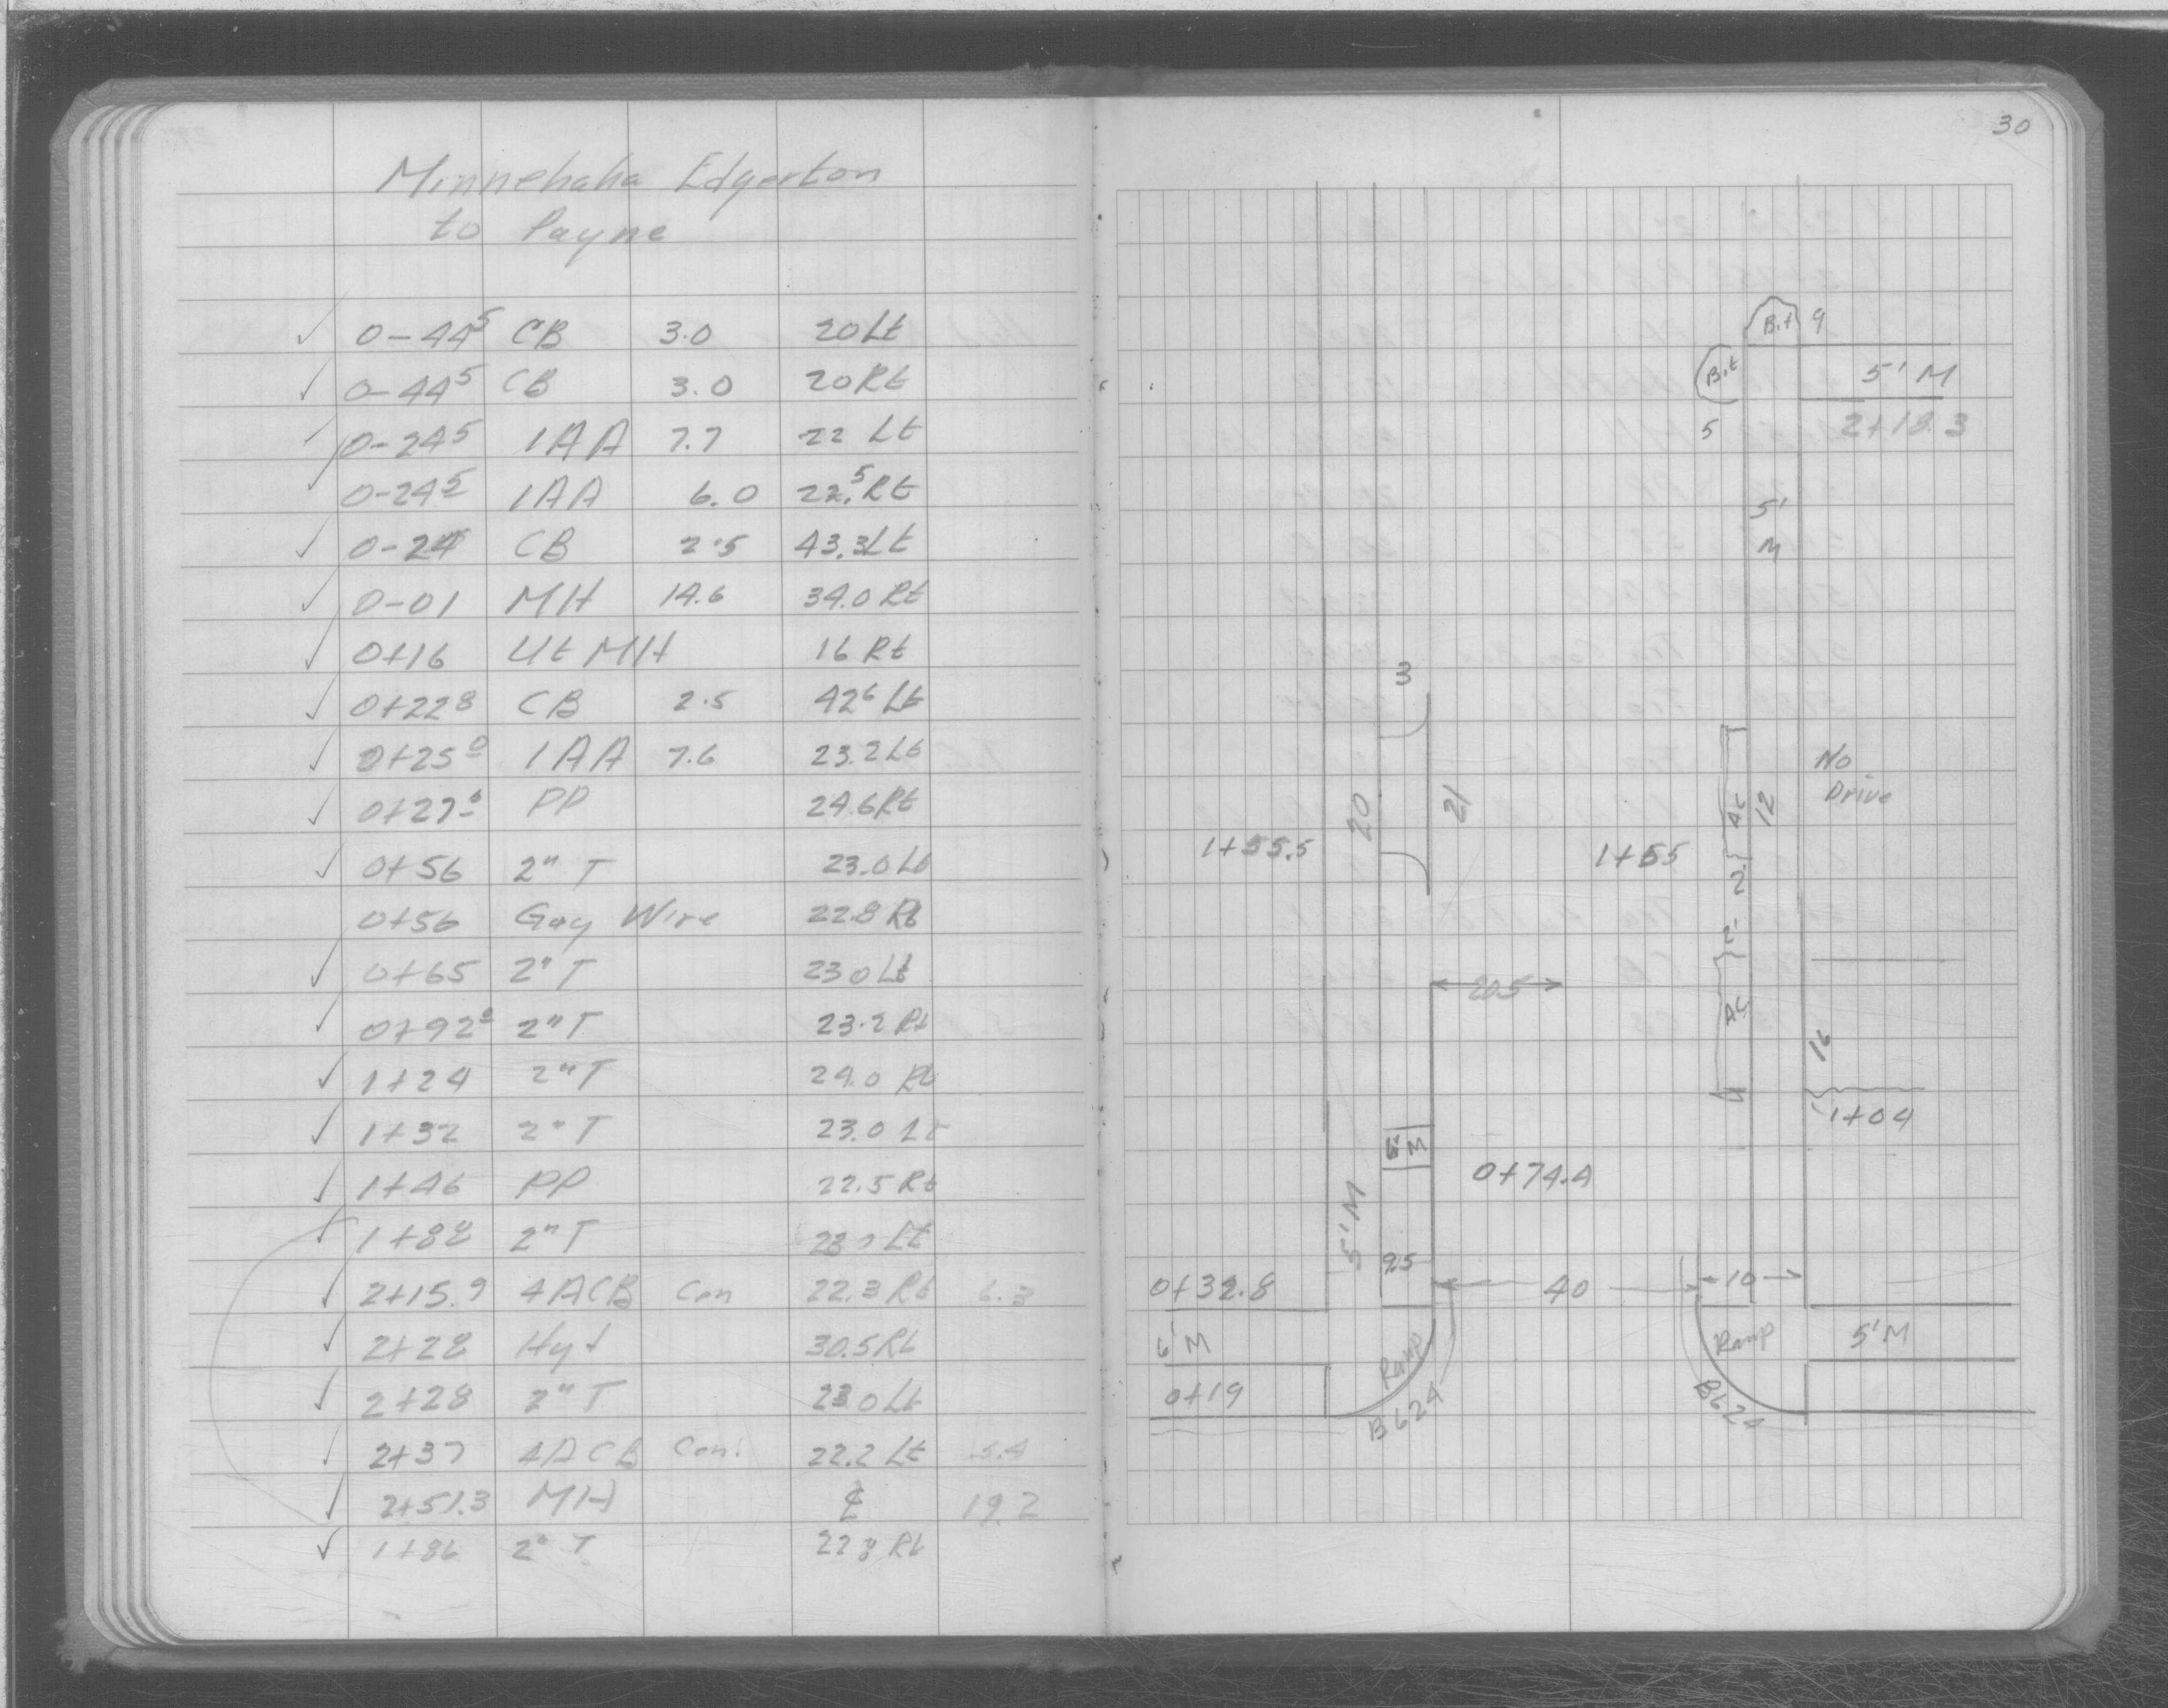 Minnehaha Edgerton
to Payne
✓ 0-44⁵ CB 3.0 20 Lt
✓ 0-44⁵ CB 3.0 20 Rt
✓ 0-24⁵ 1AA 7.7 22 Lt
✓ 0-24⁵ 1AA 6.0 22.⁵ Rt
✓ 0-24 CB 2.5 43.3 Lt
✓ 0-01 MH 14.6 34.0 Rt
✓ 0+16 Ut MH 16 Rt
✓ 0+22⁸ CB 2.5 42⁶ Lt
✓ 0+25⁰ 1AA 7.6 23.2 Lt
✓ 0+27 PP 24.6 Rt
✓ 0+56 2" T 23.0 Lt
0+56 Gay Wire 22.8 Rt
✓ 0+65 2" T 23.0 Lt
✓ 0+92 2" T 23.2 Rt
✓ 1+24 2" T 24.0 Rt
✓ 1+32 2" T 23.0 Lt
✓ 1+46 PP 22.5 Rt
✓ 1+88 2" T Lt
✓ 2+15.9 4ACB Con 22.3 Rt 6.3
✓ 2+28 Hyd 30.5 Rt
✓ 2+28 2" T 23.0 Lt
✓ 2+37 4ACB Con. 22.2 Lt 5.4
✓ 2+51.3 MH ℄ 19.2
✓ 1+86 2" T 22.8 Rt
30
Bit 9
Bit 5' M
5 2+18.3
5'
M
3
No
Drive
20 21 Ac 12
1+55.5 1+55
2
2
20.5
Ac
16
1+04
5' M
0+74.4
5' M
9.5
0+32.8 40 10
6' M Ramp Ramp 5' M
0+19 B624 B624